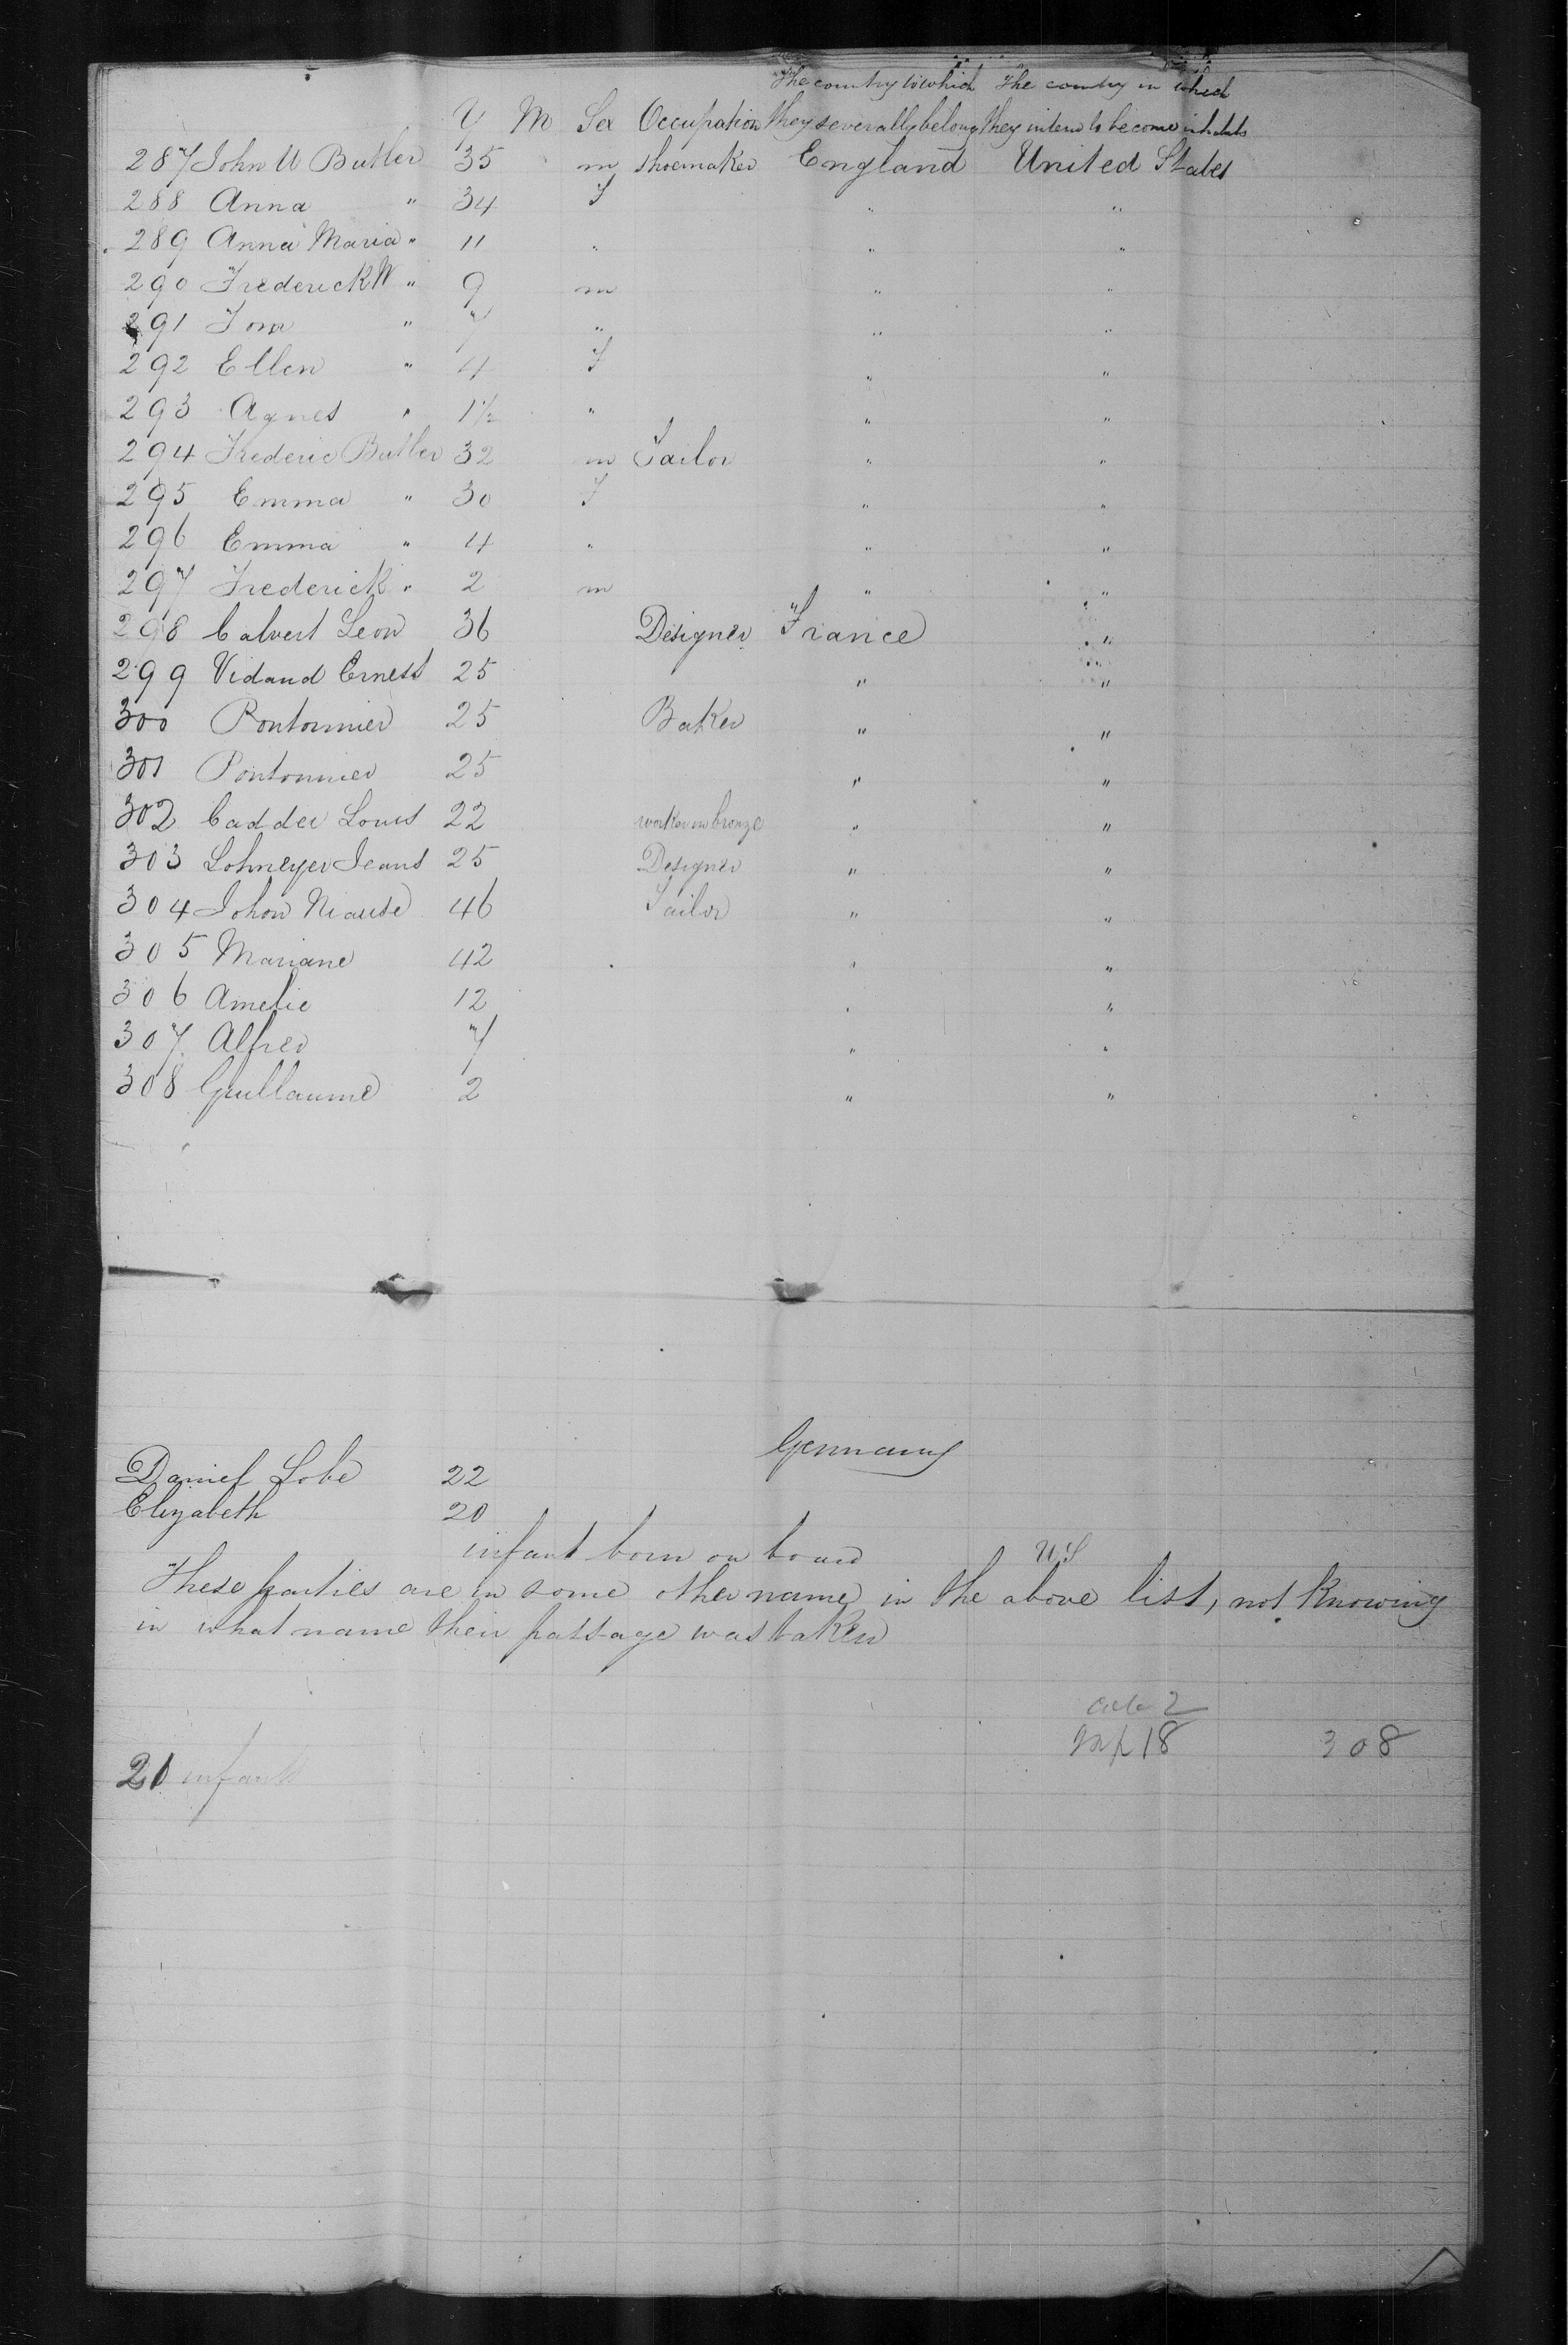 The country to which The country in which
Y M Sex Occupation they severally belong they intend to become inhabts
287 John W Butler 35 m shoemaker England United States
288 Anna " 34 F " "
289 Anna Maria " 11 " " "
290 Frederick W " 9 m " "
291 Tom " 7 " " "
292 Ellen " 4 F " "
293 Agnes " 1½ " " "
294 Frederic Butler 32 m Tailor " "
295 Emma " 30 F " "
296 Emma " 4 " " "
297 Frederick " 2 m " "
298 Calvert Leon 36 Designer France "
299 Vidaud Ernest 25 " "
300 Pontonnier 25 Baker " "
301 Pontonnier 25 " "
302 Cadder Louis 22 worker in bronze " "
303 Lohneyer Jeans 25 Designer " "
304 Johon Niause 46 Tailor " "
305 Mariane 42 " "
306 Amelie 12 " "
307 Alfred 7 " "
308 Guillaume 2 " "
Germany
Daniel Lobe 22
Elizabeth 20
infant born on board US
These parties are in some other name in the above list, not knowing
in what name their passage was taken
2
Inf 18 308
21 infants